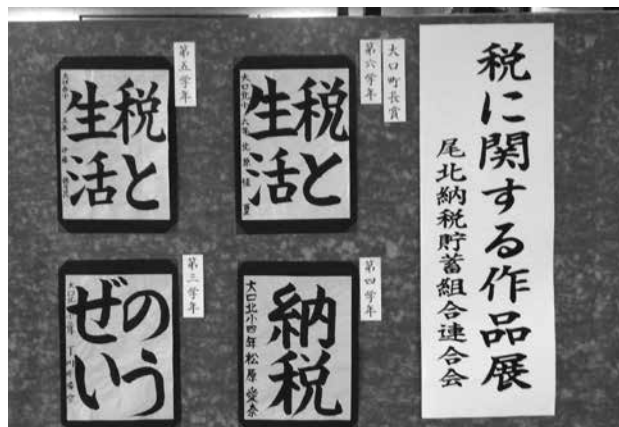 税に関する作品展
尾北納税貯蓄組合連合会
大口町長賞
第六学年
税と
生活
第五学年
税と
生活
第四学年
納税
大口北小四年松原愛奈
第三学年
のう
ぜい